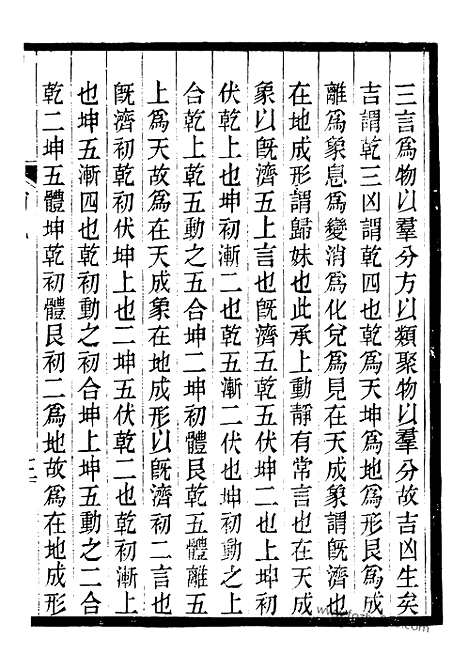 三言爲物以羣分方以類聚物以羣分故吉凶生矣
吉謂乾三凶謂乾四也乾爲天坤爲地爲形艮爲成
離爲象息爲變消爲化兌爲見在天成象謂旣濟也
在地成形謂歸妹也此承上動靜有常言也在天成
象以旣濟五上言也旣濟五伏坤二也上坤初
伏乾上也坤初漸二也乾五漸二伏也坤初動之上
合乾上乾五動之五合坤二坤初體艮乾五體離五
上爲天故爲在天成象在地成形以旣濟初二言也
旣濟初乾初伏坤上也二坤五伏乾二也乾初漸上
也坤五漸四也乾初動之初合坤上坤五動之二合
乾二坤五體坤乾初體艮初二爲地故爲在地成形